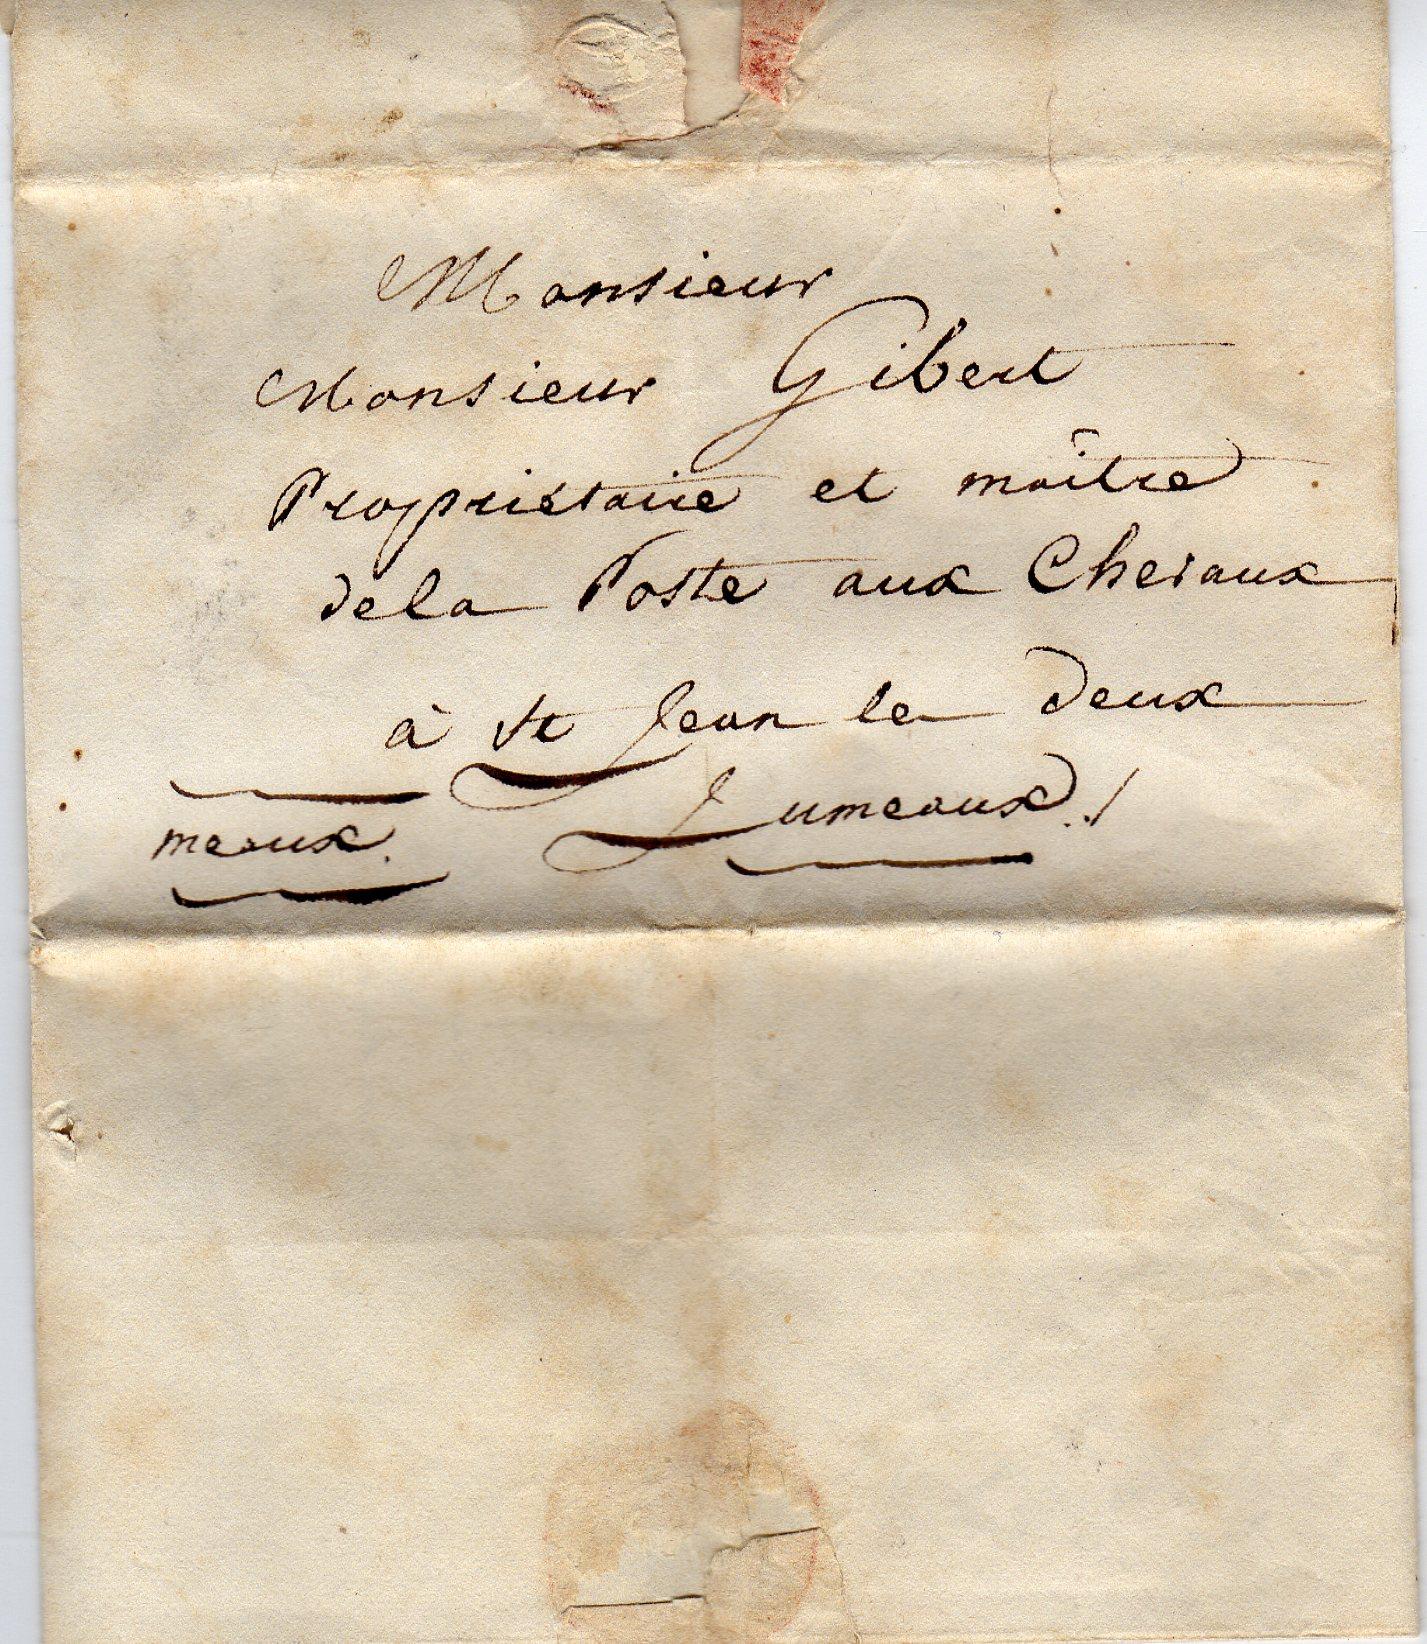 Monsieur
Monsieur Gibert
Propriétaire et maître
de la Poste aux Chevaux
à St Jean les deux
Jumeaux ./
meaux.